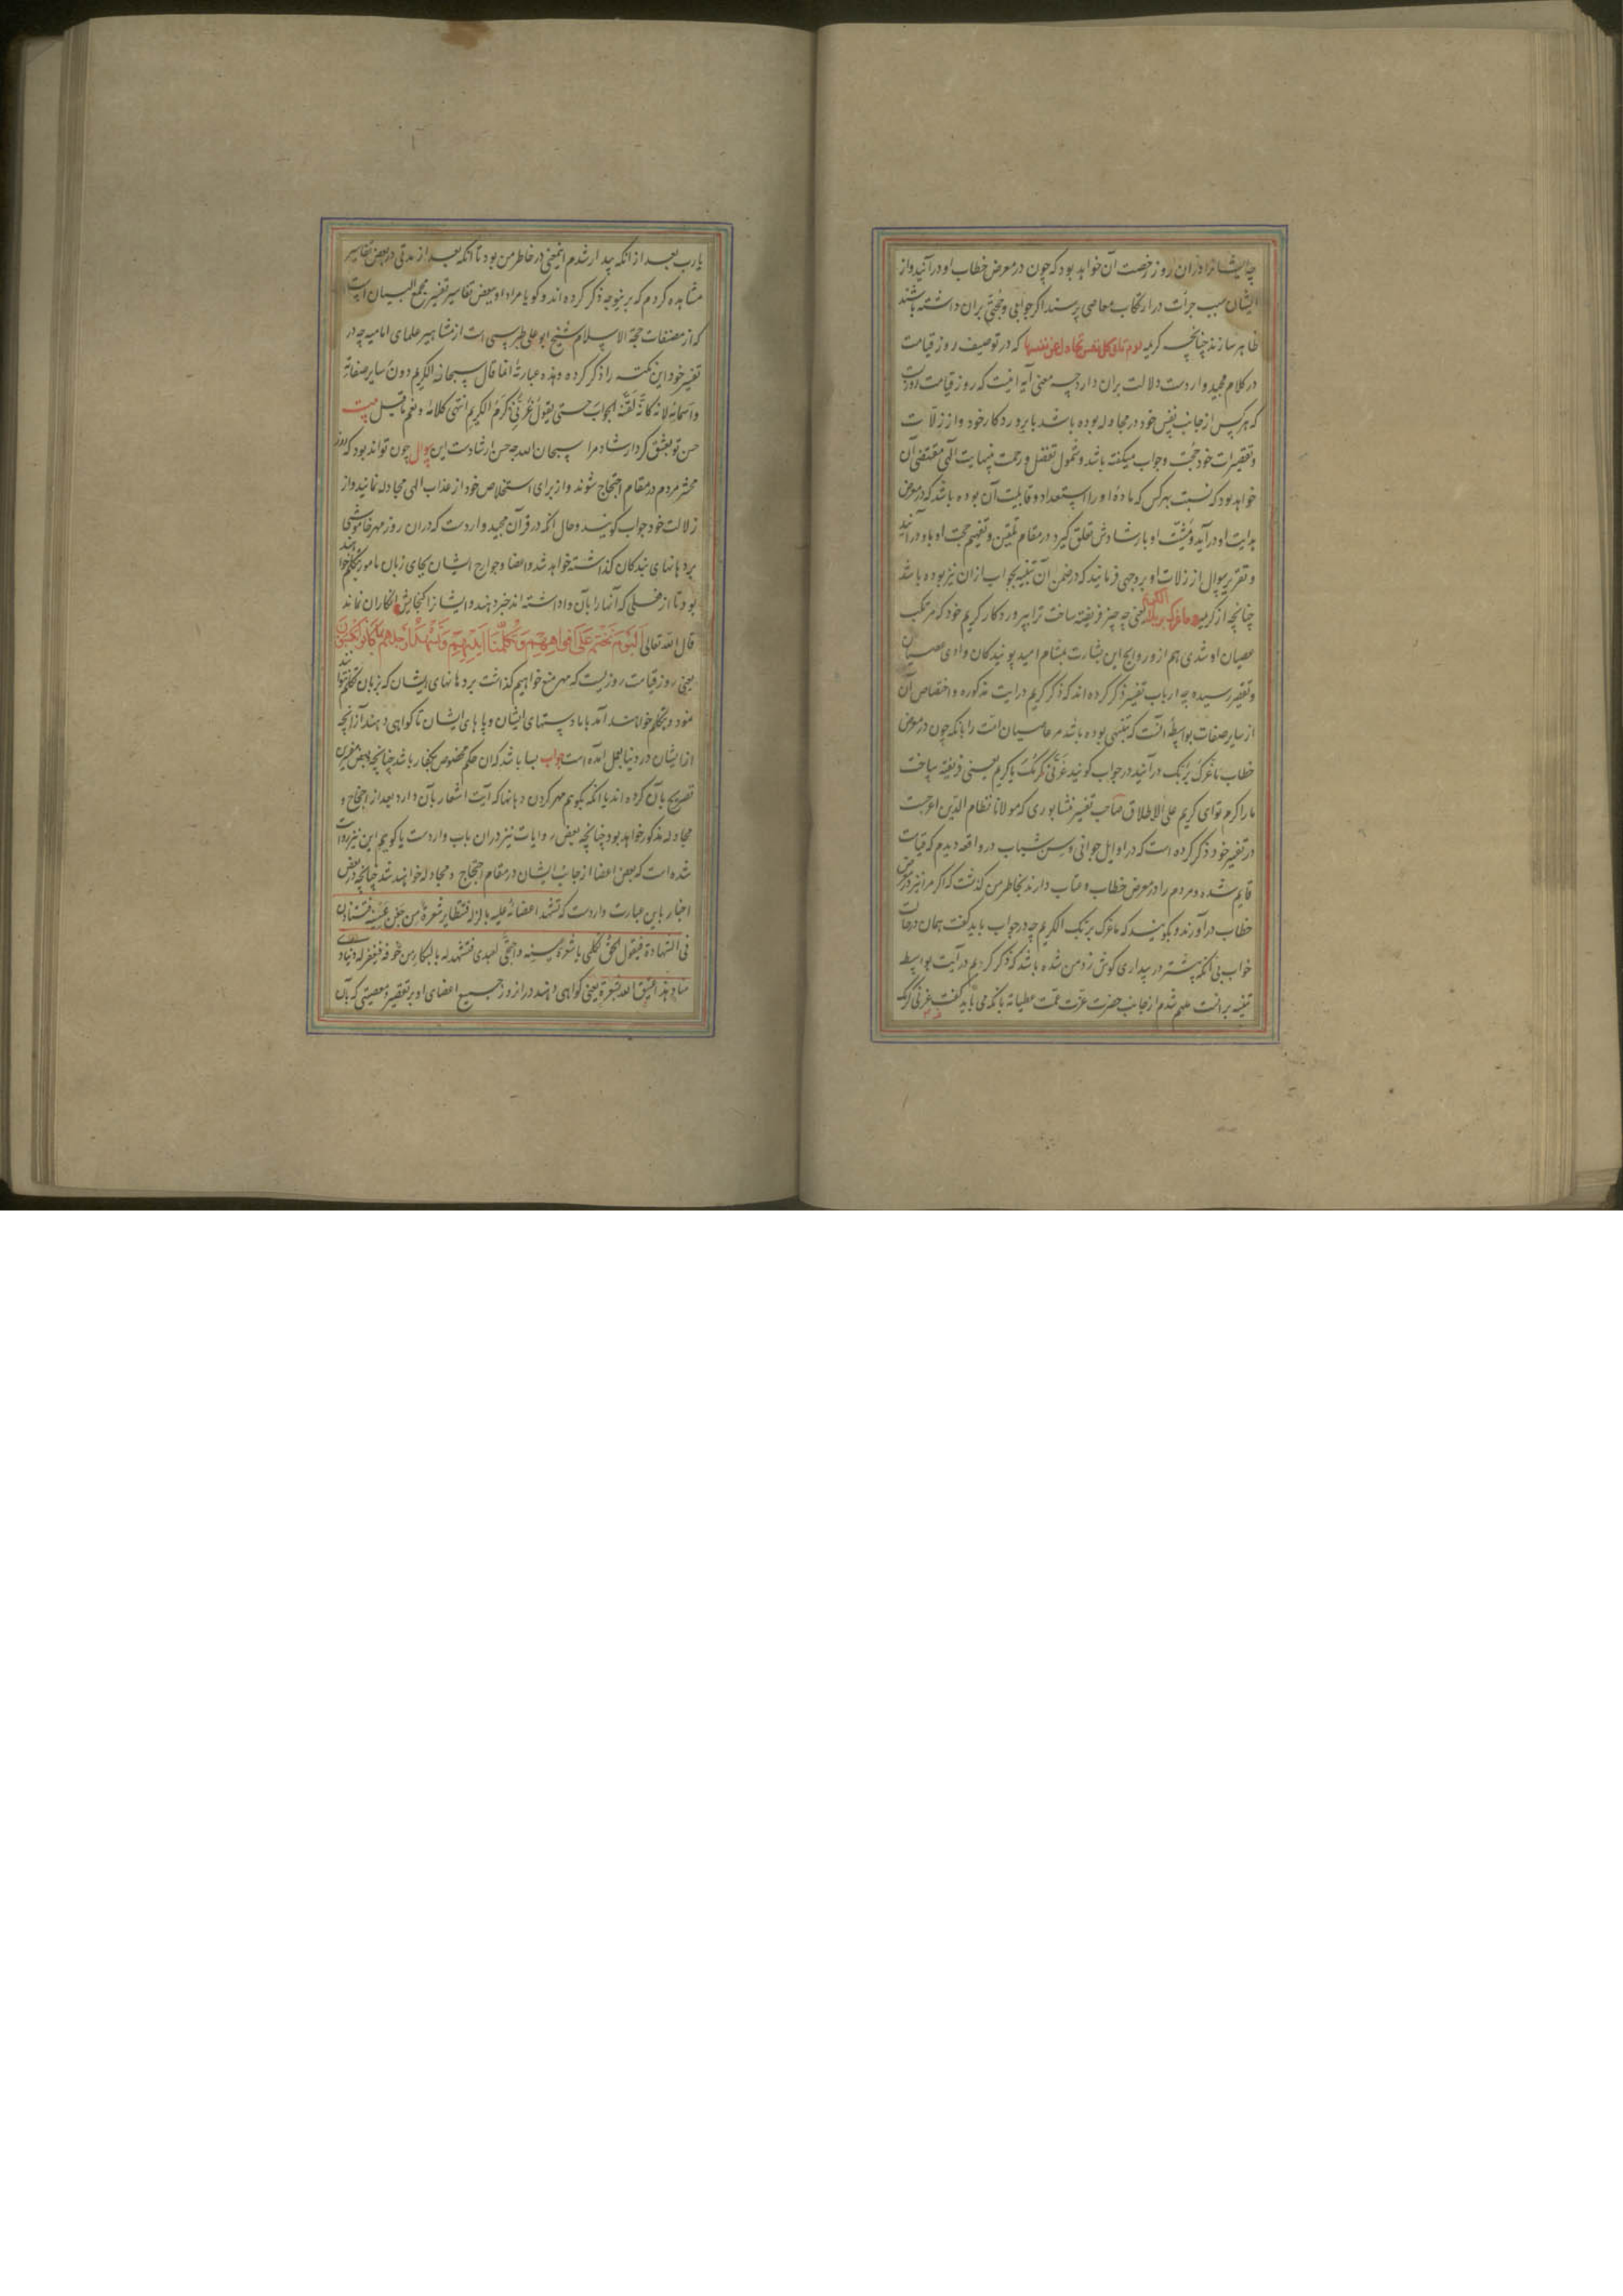 چه ایشانرا در آن روز رخصت آن خواهد بود که چون در معرض خطاب او در آیند و از
ایشان سبب جرأت در ارتکاب معاصی پرسند اگر جوابی و حجتی بران داشته باشند
ظاهر سازند چنانچه کریمه یوم تاتی کل نفس تجادل عن نفسها که در توصیف روز قیامت
در کلام مجید واردست دلالت بران دارد چه معنی آیه اینست که روز قیامت روزیست
که هر کس از جانب نفس خود در مجادله بوده باشد با پروردکار خود و از زلات
و تقصیرات خود حجت و جواب میگفته باشد و شمول تفضل و رحمت بینهایت الهی مقتضی آن
خواهد بود که نسبت بهر کس که ماده او را استعداد و قابلیت آن بوده باشد که در معرض
هدایت او در آید و مشیت او بارشادش تعلق کیرد در مقام تلقین و تفهیم حجت او باو در آیند
و تقریر سوال از زلات او بر وجهی فرمایند که در ضمن آن تنبیه بجواب ازان نیز بوده باشد
چنانچه از کریمه ما غرک بربک الکریم یعنی چه چیز فریفته ساخت ترا بپروردکار کریم خود که مرتکب
عصیان او شدی هم از ورود ایح این بشارت بمشام امید پویندکان وادی عصیان
و تقصیر رسیده چه ارباب تفسیر ذکر کرده اند که ذکر کریم درایت مذکوره و اختصاص آن
از سایر صفات بواسطه آنست که تنبیهی بوده باشد مر عاصیان امت را بانکه چون در معرض
خطاب ما غرک بربک در آیند در جواب کویند غرنی کرمک یا کریم یعنی فریفته ساخت
ما را کرم تو ای کریم علی الاطلاق صاحب تفسیر نشابوری که مولانا نظام الدین اعرجست
در تفسیر خود ذکر کرده است که در اوایل جوانی و سن شباب در واقعه دیدم که قیامت
قایم شده و مردم را در معرض خطاب و عتاب دارند بخاطر من کذشت که اگر مرا نیز در معرض
خطاب در آورند و بکویند که ما غرک بربک الکریم چه در جواب باید کفت همان در حالت
خواب بی انکه پیشتر در بیداری کوش زد من شده باشد که ذکر کریم در آیت بواسطه
تنبیه بر آنست ملهم شدم از جانب حضرت عزت عمت عطیاته بانکه می باید کفت غرنی کرمک
یارب بعد از انکه بیدار شدم اینمعنی در خاطر من بود تا آنکه بعد از مدتی در بعض تفاسیر
مشاهده کردم که بر ینوجه ذکر کرده اند و کویا مراد او ببعض تفاسیر تفسیر مجمع البیان است
که از مصنفات حجة الاسلام شیخ ابو علی طبرسی است از مشاهیر علمای امامیه چه در
تفسیر خود این نکته را ذکر کرده و هذه عبارته انما قال سبحانه الکریم دون سایر صفاته
و اسمائه لانه کانه لقنه الجواب حتی یقول غرنی کرم الکریم انتهی کلامه و نعم ما قیل بیت
حسن تو بعشق کرد ارشاد مرا سبحان الله چه حسن ارشادست این سوال چون تواند بود که روز
محشر مردم در مقام احتجاج شوند و از برای استخلاص خود از عذاب الهی مجادله نمایند و از
زلات خود جواب کویند و حال انکه در قرآن مجید واردست که دران روز مهر خاموشی
بر دهانهای بندکان کذاشته خواهد شد و اعضا و جوارح ایشان بجای زبان مامور بتکلم خواهند
بود تا از فعلی که آنها را بآن واداشته اند خبر دهند و ایشانرا کنجایش انکاران نماند
قال الله تعالی الیوم نختم علی افواههم و تکلمنا ایدیهم و تشهد ارجلهم بما کانوا یکسبون
یعنی روز قیامت روزیست که مهر منع خواهیم کذاشت بر دهانهای ایشان که بزبان تکلم نتوانند
نمود و بتکلم خواهند آمد با ما دستهای ایشان و پاهای ایشان تا کواهی دهند از انچه
از ایشان در دنیا بعمل آمده است جواب بسا باشد که ان حکم مخصوص بکفار باشد چنانچه بعض مفسرین
تصریح بآن کرده اند یا انکه بکویم مهر کردن دهانها که آیت اشعار بآن دارد بعد از احتجاج و
مجادله مذکور خواهد بود چنانچه بعض روایات نیز دران باب واردست یا کویم این نیز روایت
شده است که بعض اعضا از جانب ایشان در مقام احتجاج و مجادله خواهند شد چنانچه در بعض
اخبار باین عبارت واردست که تشهد اعضائه علیه بالزلة فتطایر شعرة من جفن عینه فتستاذن
فی الشهادة فیقول الحق تکلمی یا شعرة عینه و احتجی لعبدی فتشهد له بالبکاء من خوفه فیغفر له و ینادی
مناد هذا عتیق الله بشعرة یعنی کواهی دهند در از روز جمیع اعضای او بر تقصیر و معصیتی که بآن